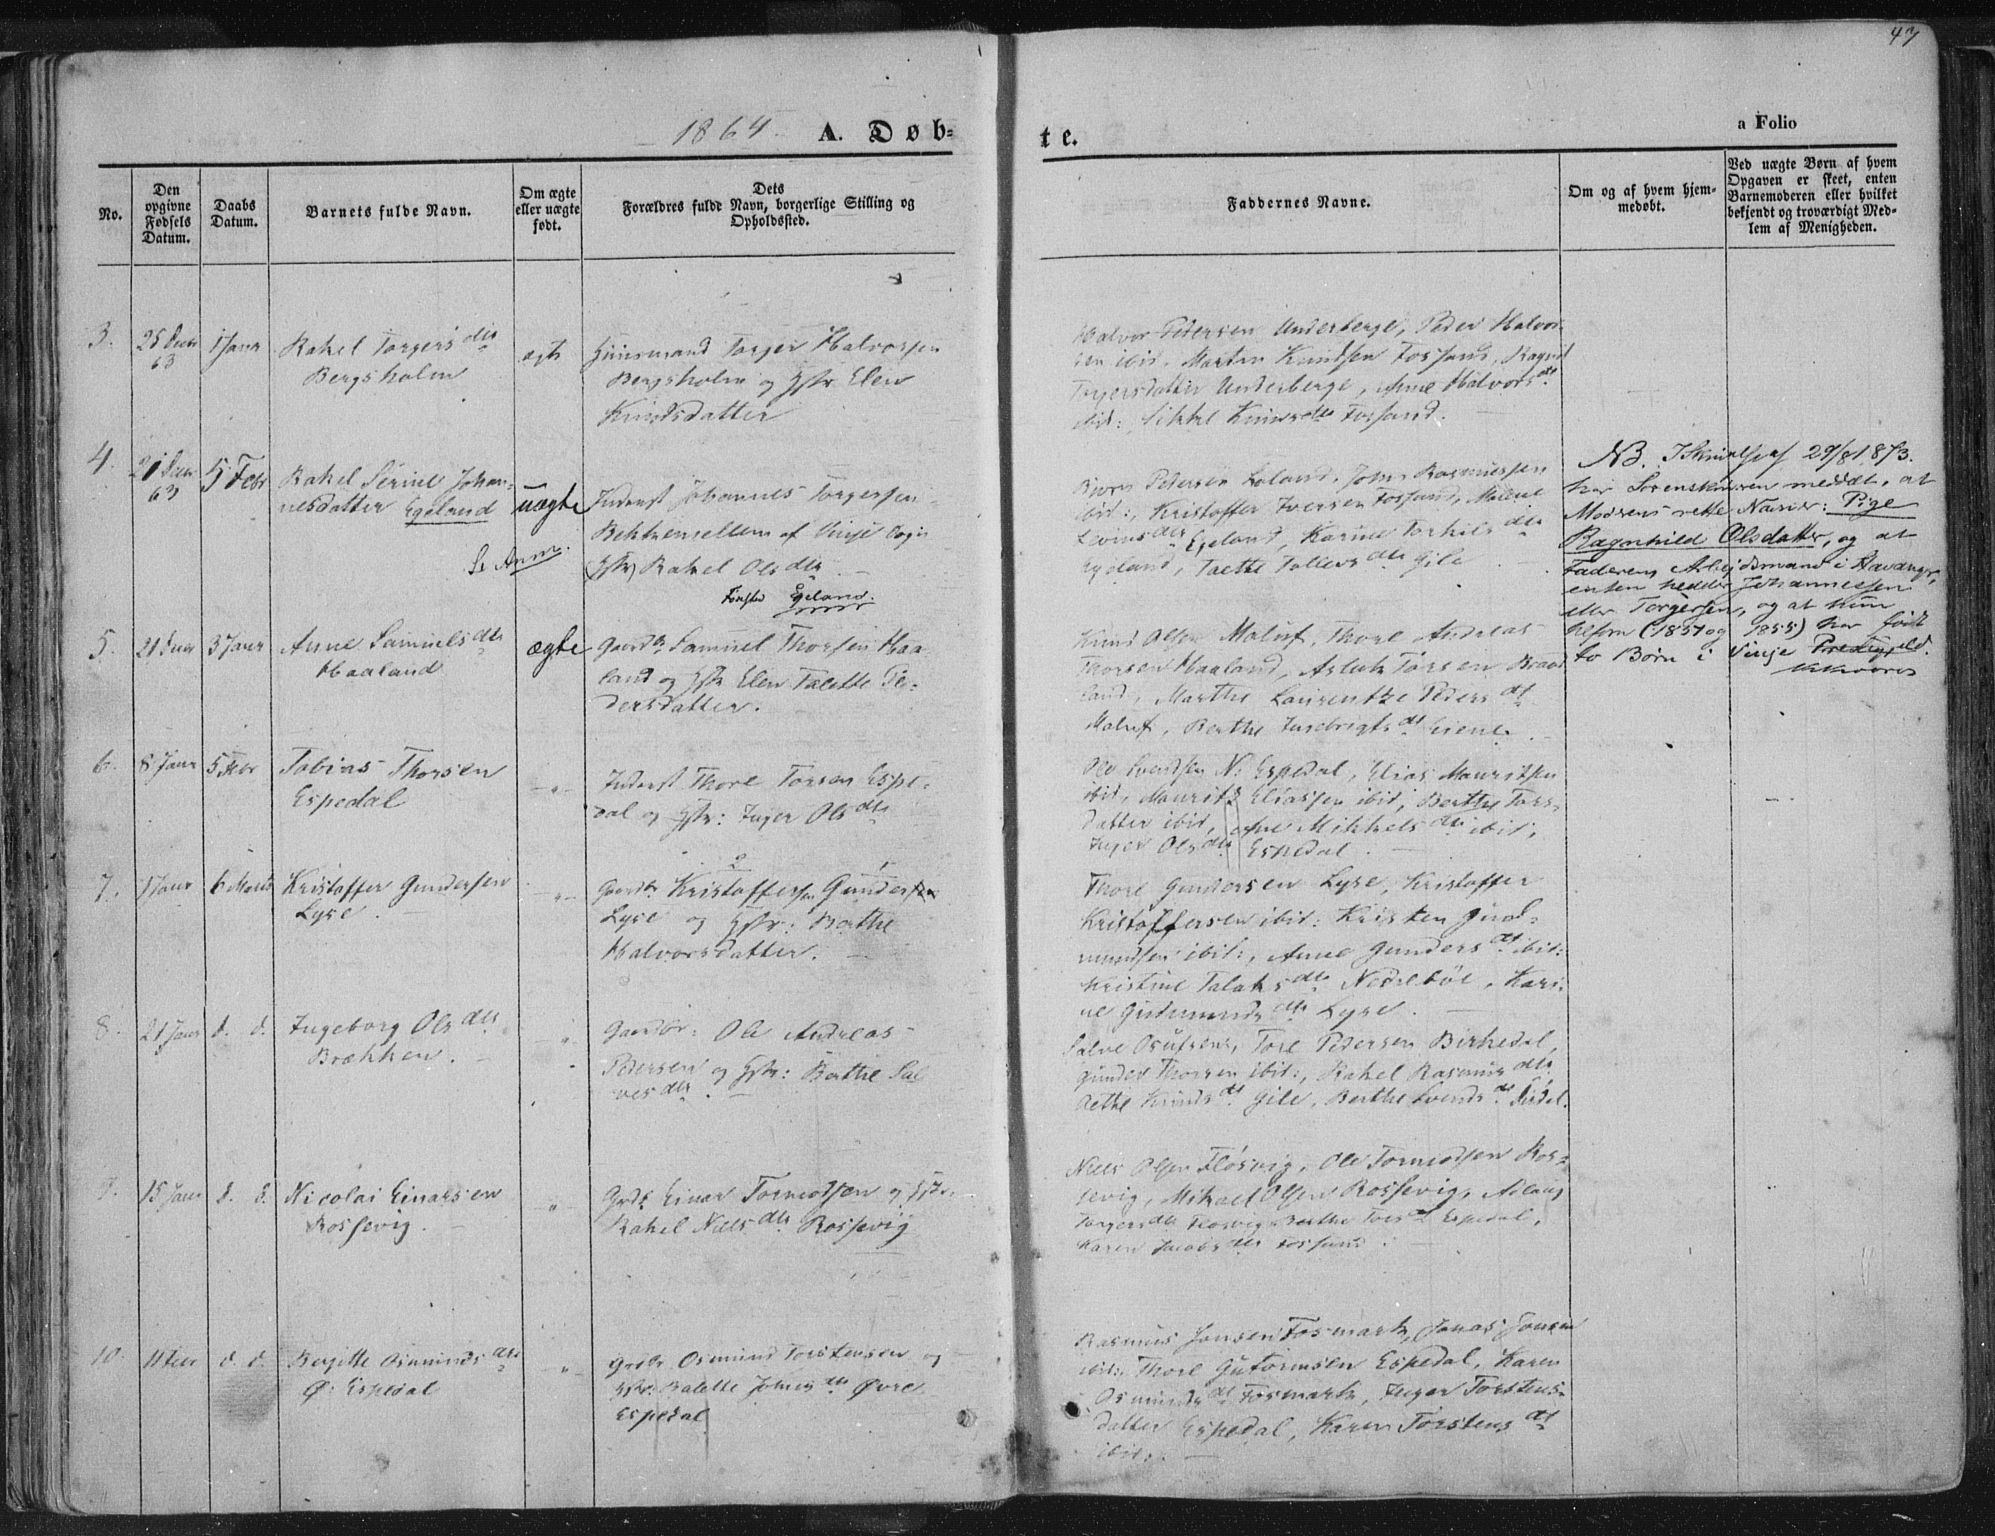 47
1864.
A. Døb-
te.
a Folio
No.
Den
opgivne
Fødsels
Datum.
Daabs
Datum.
Barnets fulde Navn.
Om ægte
eller uægte
født.
Dets
Forældres fulde Navn, borgerlige Stilling og
Opholdssted.
Faddernes Navne.
Om og af hvem hjem-
medøbt.
Ved uægte Børn af hvem
Opgaven er skeet, enten
Barnemoderen eller hvilket
bekjendt og troværdigt Med-
lem af Menigheden.
3.
63
1 Janr
Rakel Torgersdtr
Bergsholm
ægte
Huusmand Torger Halvorsen
Bergsholm og Hstr Elen
Knudsdatter
Halvor Pedersen Underberge, Peder Halvor-
sen ibid. Morten Knudsen Fossand,
Torgersdatter Underberge, Anne Halvorsdt
ibid: Sikkel Knudsdtr Fossand.
4.
63
5 Febr
Rakel Serine Johan-
nesdatter Egeland
uægte
Inderst Johannes Torgersen
af Vinje Sogn
Rakel Olsdtr
Egeland.
Bjørn Pedersen Løland, John Rasmussen
ibid:, Kristoffer Iversen Fossand, Malene
Egeland, Karine Torkilsdtr
Egeland, Taette Gile
NB. I Skrivelse af 29/8 1873.
har Sorenskriveren meddelt, at
Moderens rette Navn er: Pige
Ragnhild Olsdatter, og at
Faderen, Arbejdsmand i Stavanger,
enten hedder Johannessen
eller Torgersen, og at hun
(1851 og 1855) har født
to Børn i Vinje Prestegjeld.
5.
21 Decr
3 Janr
Anne Samuelsdtr
Haaland
ægte
Gaardbr Samuel Thorsen Haa-
land og Hstr Elen Talette Pe-
dersdatter.
Knud Olsen Maluf, Thore Andreas
Thorsen Haaland, Aslak Torsen
land, Marthe Laurentze Pedersdt
Maluf, Berthe
6.
8 Janr
5 Febr
Tobias Thorsen
Espedal
-"-
Inderst Thore Torsen Espe-
dal og Hstr: Inger Olsdtr
Ole Svendsen N: Espedal, Elias Mauritsen
ibid, Mauritz Eliassen ibid, Berthe Tors-
datter ibid, Ane Mikkelsdtr ibid,
Inger Olsdtr Espedal.
7.
1 Janr
6 Marts
Kristoffer Gundersen
Lyse.
-"-
2
1
Gaardbr Kristoffersen Gunder
Lyse og Hstr: Berthe
Halvorsdatter.
Thore Gundersen Lyse, Kristoffer
Kristoffersen ibid: Kristen Gud-
mundsen ibid:, Anne Gundersdt ibid:
Kristine Talaksdtr Nedrebøe, Kari-
ne Gudmundsdtr Lyse.
8.
21 Janr
d. d.
Ingeborg Olsdtr
Brækken.
-"-
Gaardbr: Ole Andreas
Pedersen og Hstr: Berthe Sal-
vesdtr.
Salve Osufsens, Tore Pedersen Birkedal,
Gunder Thorsen ibid:, Rakel Rasmusdtr
Aethe Knudsdt Gile, Berthe Svendsdt
9.
15 Janr
d. d.
Nicolai Einarsen
Rossevig.
-"-
Grdbr Einar Tormodsen og Hstr.
Rakel Nielsdtr Rossevig
Niels Olsen Fløsvig, Ole Tormodsen Ros-
sevig, Mikael Olsen Rossevig,
Torgersdtr Fløsvig Berthe Torsdt Espedal,
Karen Jacobsdtr Fossand.
10.
11 Febr
d. d.
Bergitte Osmundsdtr
Ø: Espedal
-"-
Grdbr Osmund Torstensen og
Hstr: Balette Johnsdtr Øvre
Espedal
Rasmus Jonsen Fosmark, Jonas Jonsen
ibid: Thore Gutormsen Espedal, Karen
Osmundsdt Fosmark, Inger Torstens-
datter Espedal, Karen Torstensdt
ibid.